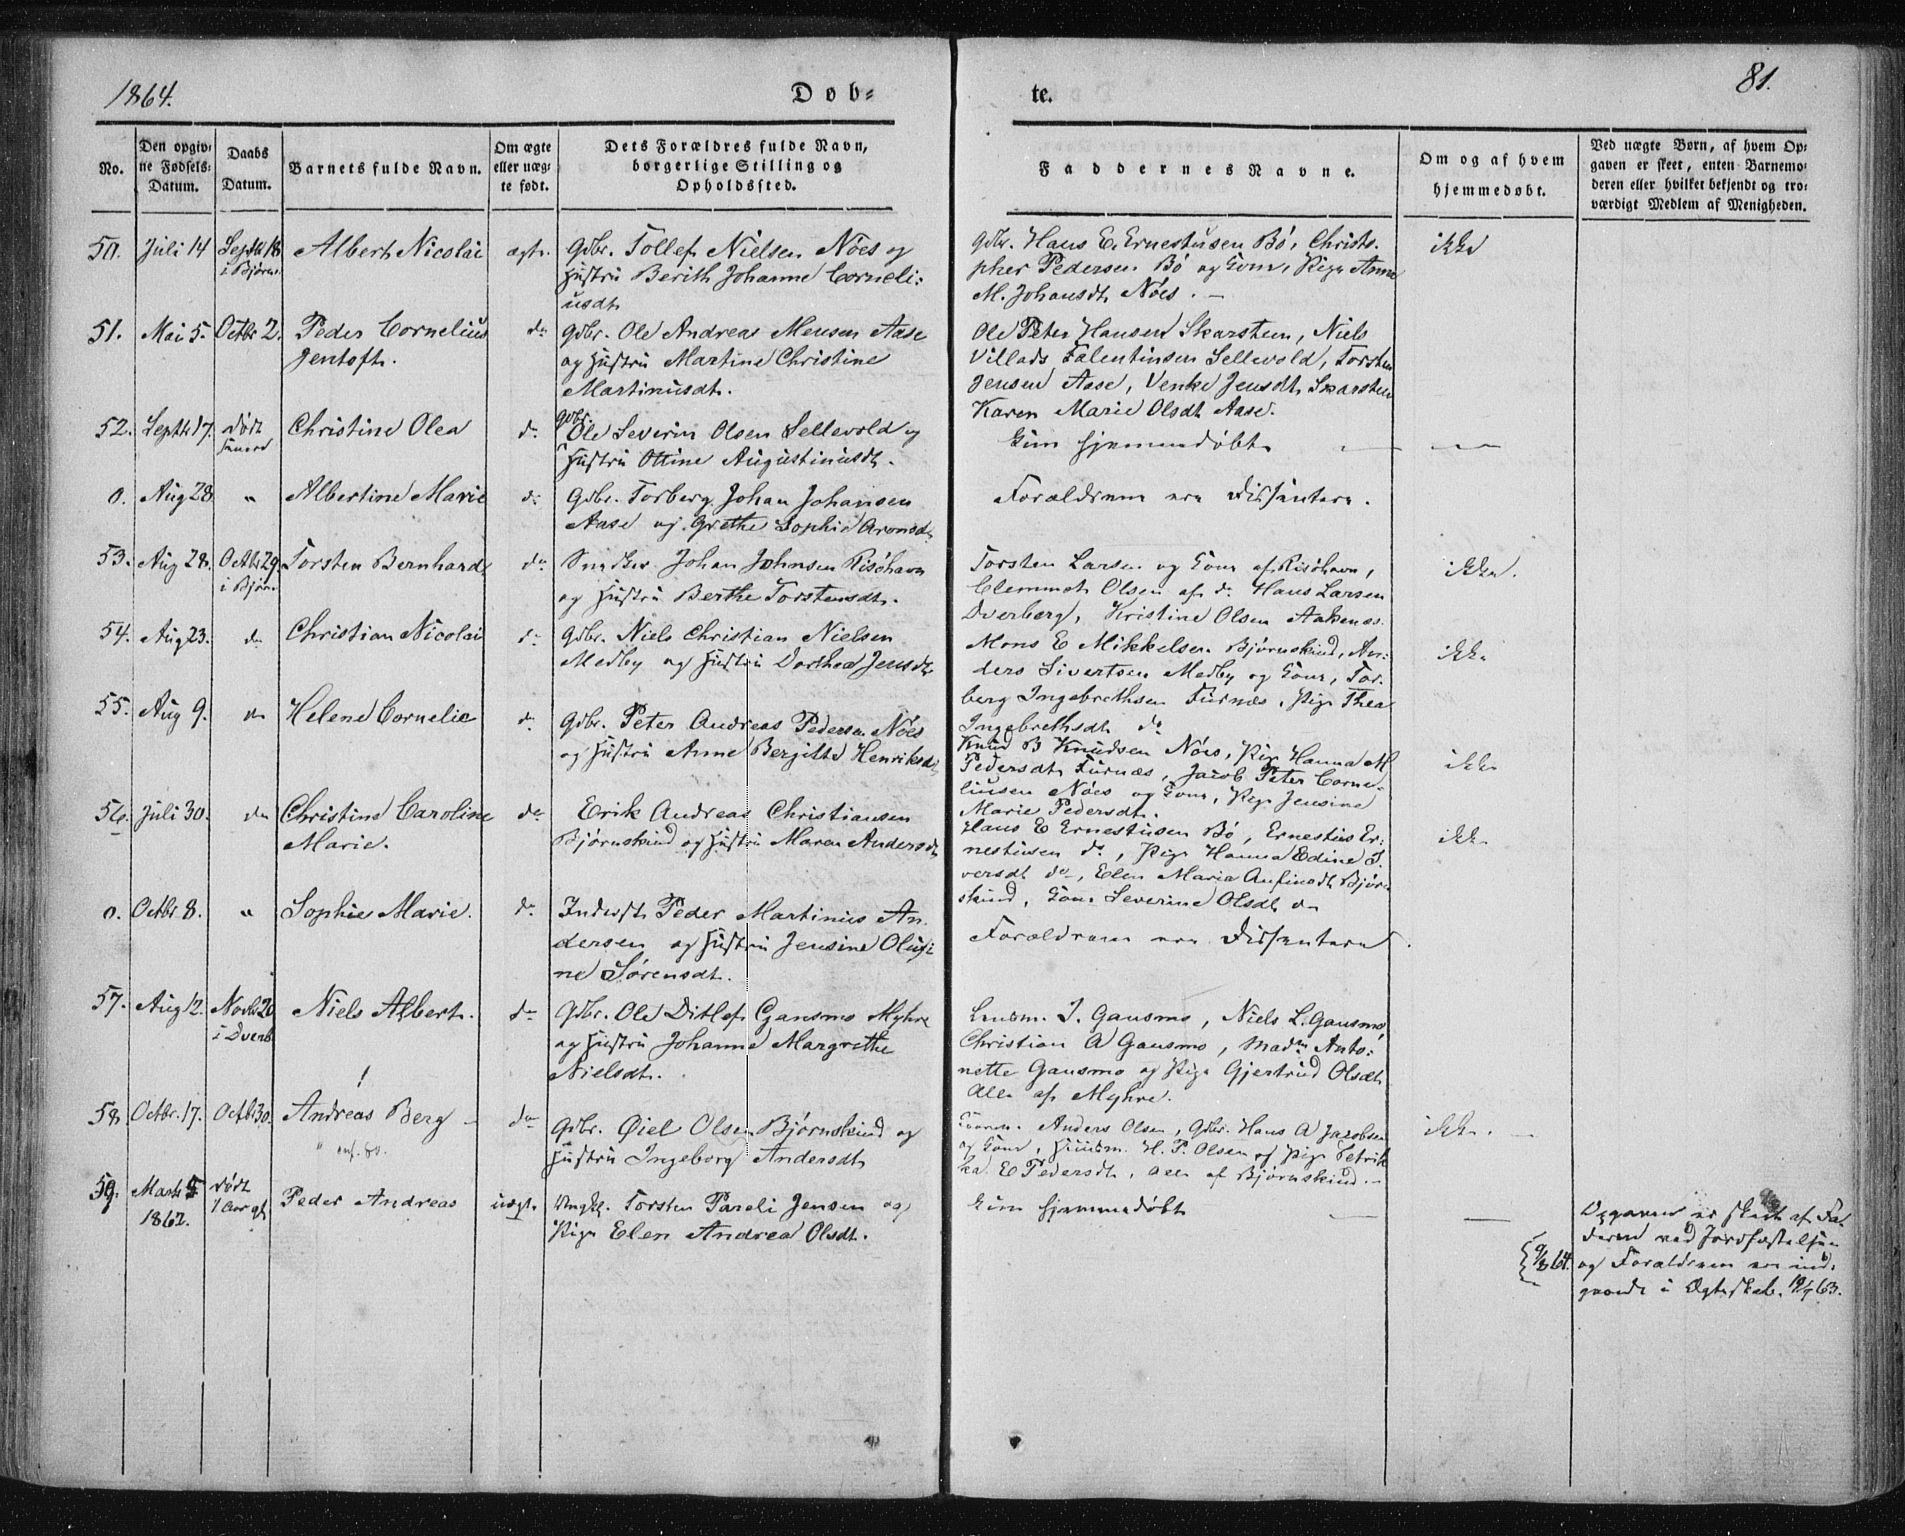 1864.
Døb=
te.
81.
No.
Den opgiv=
ne Fødsels=
Datum.
Daabs
Datum.
Barnets fulde Navn.
Om ægte
eller uæg=
te født.
Dets Forældres fulde Navn,
borgerlige Stilling og
Opholdssted.
Faddernes Navne.
Om og af hvem
hjemmedøbt.
Ved uægte Børn, af hvem Op=
gaven er skeet, enten Barnemo=
deren eller hvilket bekjendt og tro=
værdigt Medlem af Menigheden.
50. Juli 14 Septb 18 i Bjørns. Albert Nicolai ægte. Gdbr. Tollef Nielsen Nöes og
Hustru Berith Johanne Corneli=
usdt.
Gdbr. Hans E. Ernestusen Bö, Christo=
pher Pedersen Bö og Kone, Pige Anne
M. Johansdt Nöes. —
ikke
51. Mai 5. Octbr 2. Peder Cornelius do Gdbr. Ole Andreas Mensen Aase
Jentoft. og Hustru Martine Christine
Martinusdt.
Ole Peter Hansen Skarsteen, Niels
Villads Falentinsen Sellevold, Torsten
Jensen Aase, Venke Jensdt Skarsten
Karen Marie Olsdt Aase.
52. Septb 17. död Christine Olea do Gdbr. Ole Severin Olsen Sellevold og
Hustru Ottine Augustinusdt.
Kun hjemmedöbt — —
0. Aug 28 " Albertine Marie do Gdbr. Torberg Johan Johansen
Aase og Grethe Sophie Aronsdt
Forældrene ere Dissentere.
53. Aug 28. Octb 29. i Bjørn Torsten Bernhard do Snedker Johan Johnsen Risöhavn
og Hustru Berthe Torstensdt.
Torsten Larsen og Kone af Risöhavn,
Clemmet Olsen af do Hans Larsen
Dverberg, Kristine Olsen Aaknes.
ikke.
54. Aug 23. do Christian Nicolai do Gdbr. Niels Christian Nielsen
Medby og Hustru Dorthea Jensdt
Mons E Mikkelsen Bjørnskind, An=
ders Sivertsen Medby og Kone, Tor=
berg Ingebrethsen Furnæs, Pige Thea
Ingebrethsdt do
ikke
55. Aug 9. do Helene Cornelie do Gdbr. Peter Andreas Pedersen Nöes
og Hustru Anne Bergitte Henriksdt
Knud B Knudsen Nöes, Pige Hanna M
Pedersdt Furnæs, Jacob Peter Corne=
liusen Nöes og Kone, Pige Jensine
Marie Pedersdt.
ikke
56. Juli 30. do Christine Caroline do Erik Andreas Christiansen
Marie. Bjørnskind og Hustru Maren Andersdt
Hans E Ernestusen Bö, Ernestus Er=
nestusen do, Pige Hanna Edine I=
versdt do, Elen Maria Anfinsdt Bjørn
skind, Kone Severine Olsdt do
ikke
0. Octbr 8. " Sophie Marie. do Inderst Peder Martinus An=
dersen og Hustru Jensine Olugi=
ne Sörensdt.
Forældrene ere Dissentere.
57. Aug 12. Novb 20 i Dverb Niels Albert. do Gdbr. Ole Ditlef Gansmo Myhre
og Hustru Johanne Margrethe
Nielsdt.
Lensm. I. Gansmo, Niels L. Gansmo,
Christian A Gansmo, Madm Anto=
nette Gansmo og Pige Gjertrud Olsdt
Alle af Myhre.
58. Octbr. 17. Octb 30. Andreas Berg do Gdbr. Øiel Olsen Bjørnskind og
Hustru Ingeborg Andersdt
Anders Olsen, Gdbr. Hans A Jacobsen
og Kone, Huusm. H. P. Olsen og Pige Petrik
ka E Pedersdt, alle af Bjørnskind. —
ikke. —
59. Marts 5 1862. död 1 Aar gl. Peder Andreas uægte Ungk. Torsten Pareli Jensen og
Pige Elen Andrea Olsdt.
Kun hjemmedöbt — —
{9/3 64.
Opgaven er skeet af Fa=
deren ved Jordfæstelsen
og Forældrene ere ind=
gaaede i Ægteskab. 19/7 63.